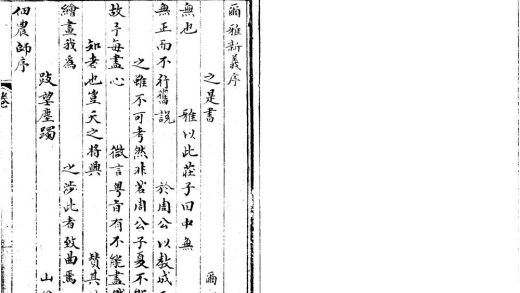 爾雅新義序
之是書　爾
無也　雅以此莊子曰中無
無正而不行舊說　於周公以教成
之雖不可考然非若周公子夏不
故予每盡心　微言粤旨有不能盡
知者也豈天之將興　贊其
繪畫我為　之涉此者致曲焉
跂望塵躅　山
佃農師序